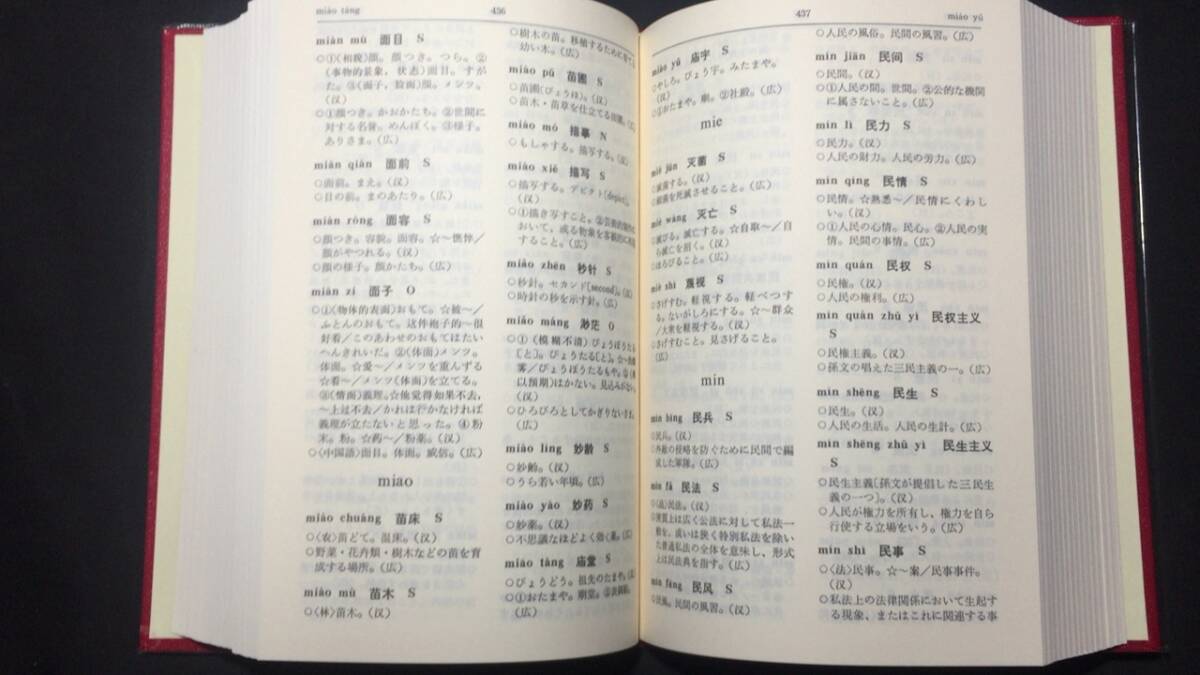 miào táng
436
miàn mù 面目 S
○①〈相貌〉顔。顔つき。つら。②
〈事物的景象，状态〉面目。すが
た。③〈面子，脸面〉顔。メンツ。
(汉)
○①顔つき。かおかたち。②世間に
対する名誉。めんぼく。③様子。
ありさま。(広)
miàn qián 面前 S
○面前。まえ。(汉)
○目の前。まのあたり。(広)
miàn róng 面容 S
○顔つき。容貌。面容。☆～憔悴／
顔がやつれる。(汉)
○顔の様子。顔かたち。(広)
miàn zi 面子 O
○①〈物体的表面〉おもて。☆被～／
ふとんのおもて。这件袍子的～很
好看／このあわせのおもてはたい
へんきれいだ。②〈体面〉メンツ。
体面。☆爱～／メンツを重んずる
☆看～／メンツ(体面)を立てる。
③〈情面〉義理。☆他觉得如果不去，
～上过不去／かれは行かなければ
義理が立たないと思った。④粉
末。粉。☆药～／粉薬。(汉)
○〈中国語〉面目。体面。威信。(広)
miao
miáo chuáng 苗床 S
○〈农〉苗どて。温床。(汉)
○野菜・花卉類・樹木などの苗を育
成する場所。(広)
miáo mù 苗木 S
○〈林〉苗木。(汉)
○樹木の苗。移植するために育てる
幼い木。(広)
miáo pǔ 苗圃 S
○苗圃(びょうほ)。(汉)
○苗木・苗草を仕立てる田圃。(広)
miáo mó 描摹 N
○もしゃする。描写する。(汉)
miáo xiě 描写 S
○描写する。デピクト[depict]。
(汉)
○①描き写すこと。②芸術的制作に
おいて，或る物象を客観的に再現
すること。(広)
miǎo zhēn 秒针 S
○秒針。セカンド[second]。(汉)
○時計の秒を示す針。(広)
miǎo máng 渺茫 O
○①〈模糊不清〉びょうぼうたる
[と]。びょうたる[と]。
以预期〉はかない。見込みがない。
(汉)
○ひろびろとしてかぎりないさま。
(広)
miào líng 妙龄 S
○妙齢。(汉)
○うら若い年頃。(広)
miào yào 妙药 S
○妙薬。(汉)
○不思議なほどよく効く薬。(広)
miào táng 庙堂 S
○びょうどう。祖先のたまや。(汉)
○①おたまや。廟堂。
(広)
437
miào yǔ
miào yǔ 庙宇 S
○やしろ。びょう宇。みたまや。
(汉)
○①おたまや。廟。②社殿。(広)
mie
miè jūn 灭菌 S
○滅菌する。(汉)
○細菌を死滅させること。(広)
miè wáng 灭亡 S
○滅びる。滅亡する。☆自取～／自
ら滅亡を招く。(汉)
○ほろびること。(広)
miè shì 蔑视 S
○さげすむ。軽視する。軽べつす
る。ないがしろにする。☆～群众
／大衆を軽視する。(汉)
○さげすむこと。見さげること。
(広)
min
mín bīng 民兵 S
○民兵。(汉)
○外敵の侵略を防ぐために民間で編
成した軍隊。(広)
mín fǎ 民法 S
○〈法〉民法。(汉)
○実質上は広く公法に対して私法一
般を，或いは狭く特別私法を除い
た普通私法の全体を意味し，形式
上は民法典を指す。(広)
mín fēng 民风 S
○民風。民間の風習。(汉)
○人民の風俗。民間の風習。(広)
mín jiān 民间 S
○民間。(汉)
○①人民の間。世間。②公的な機関
に属さないこと。(広)
mín lì 民力 S
○民力。(汉)
○人民の財力。人民の労力。(広)
mín qíng 民情 S
○民情。☆熟悉～／民情にくわし
い。(汉)
○①人民の心情。民心。②人民の実
情。民間の事情。(広)
mín quán 民权 S
○民権。(汉)
○人民の権利。(広)
mín quán zhǔ yì 民权主义
S
○民権主義。(汉)
○孫文の唱えた三民主義の一。(広)
mín shēng 民生 S
○民生。(汉)
○人民の生活。人民の生計。(広)
mín shēng zhǔ yì 民生主义
S
○民生主義[孫文が提倡した三民主
義の一つ]。(汉)
○人民が権力を所有し，権力を自ら
行使する立場をいう。(広)
mín shì 民事 S
○〈法〉民事。☆～案／民事事件。
(汉)
○私法上の法律関係において生起す
る現象，またはこれに関連する事